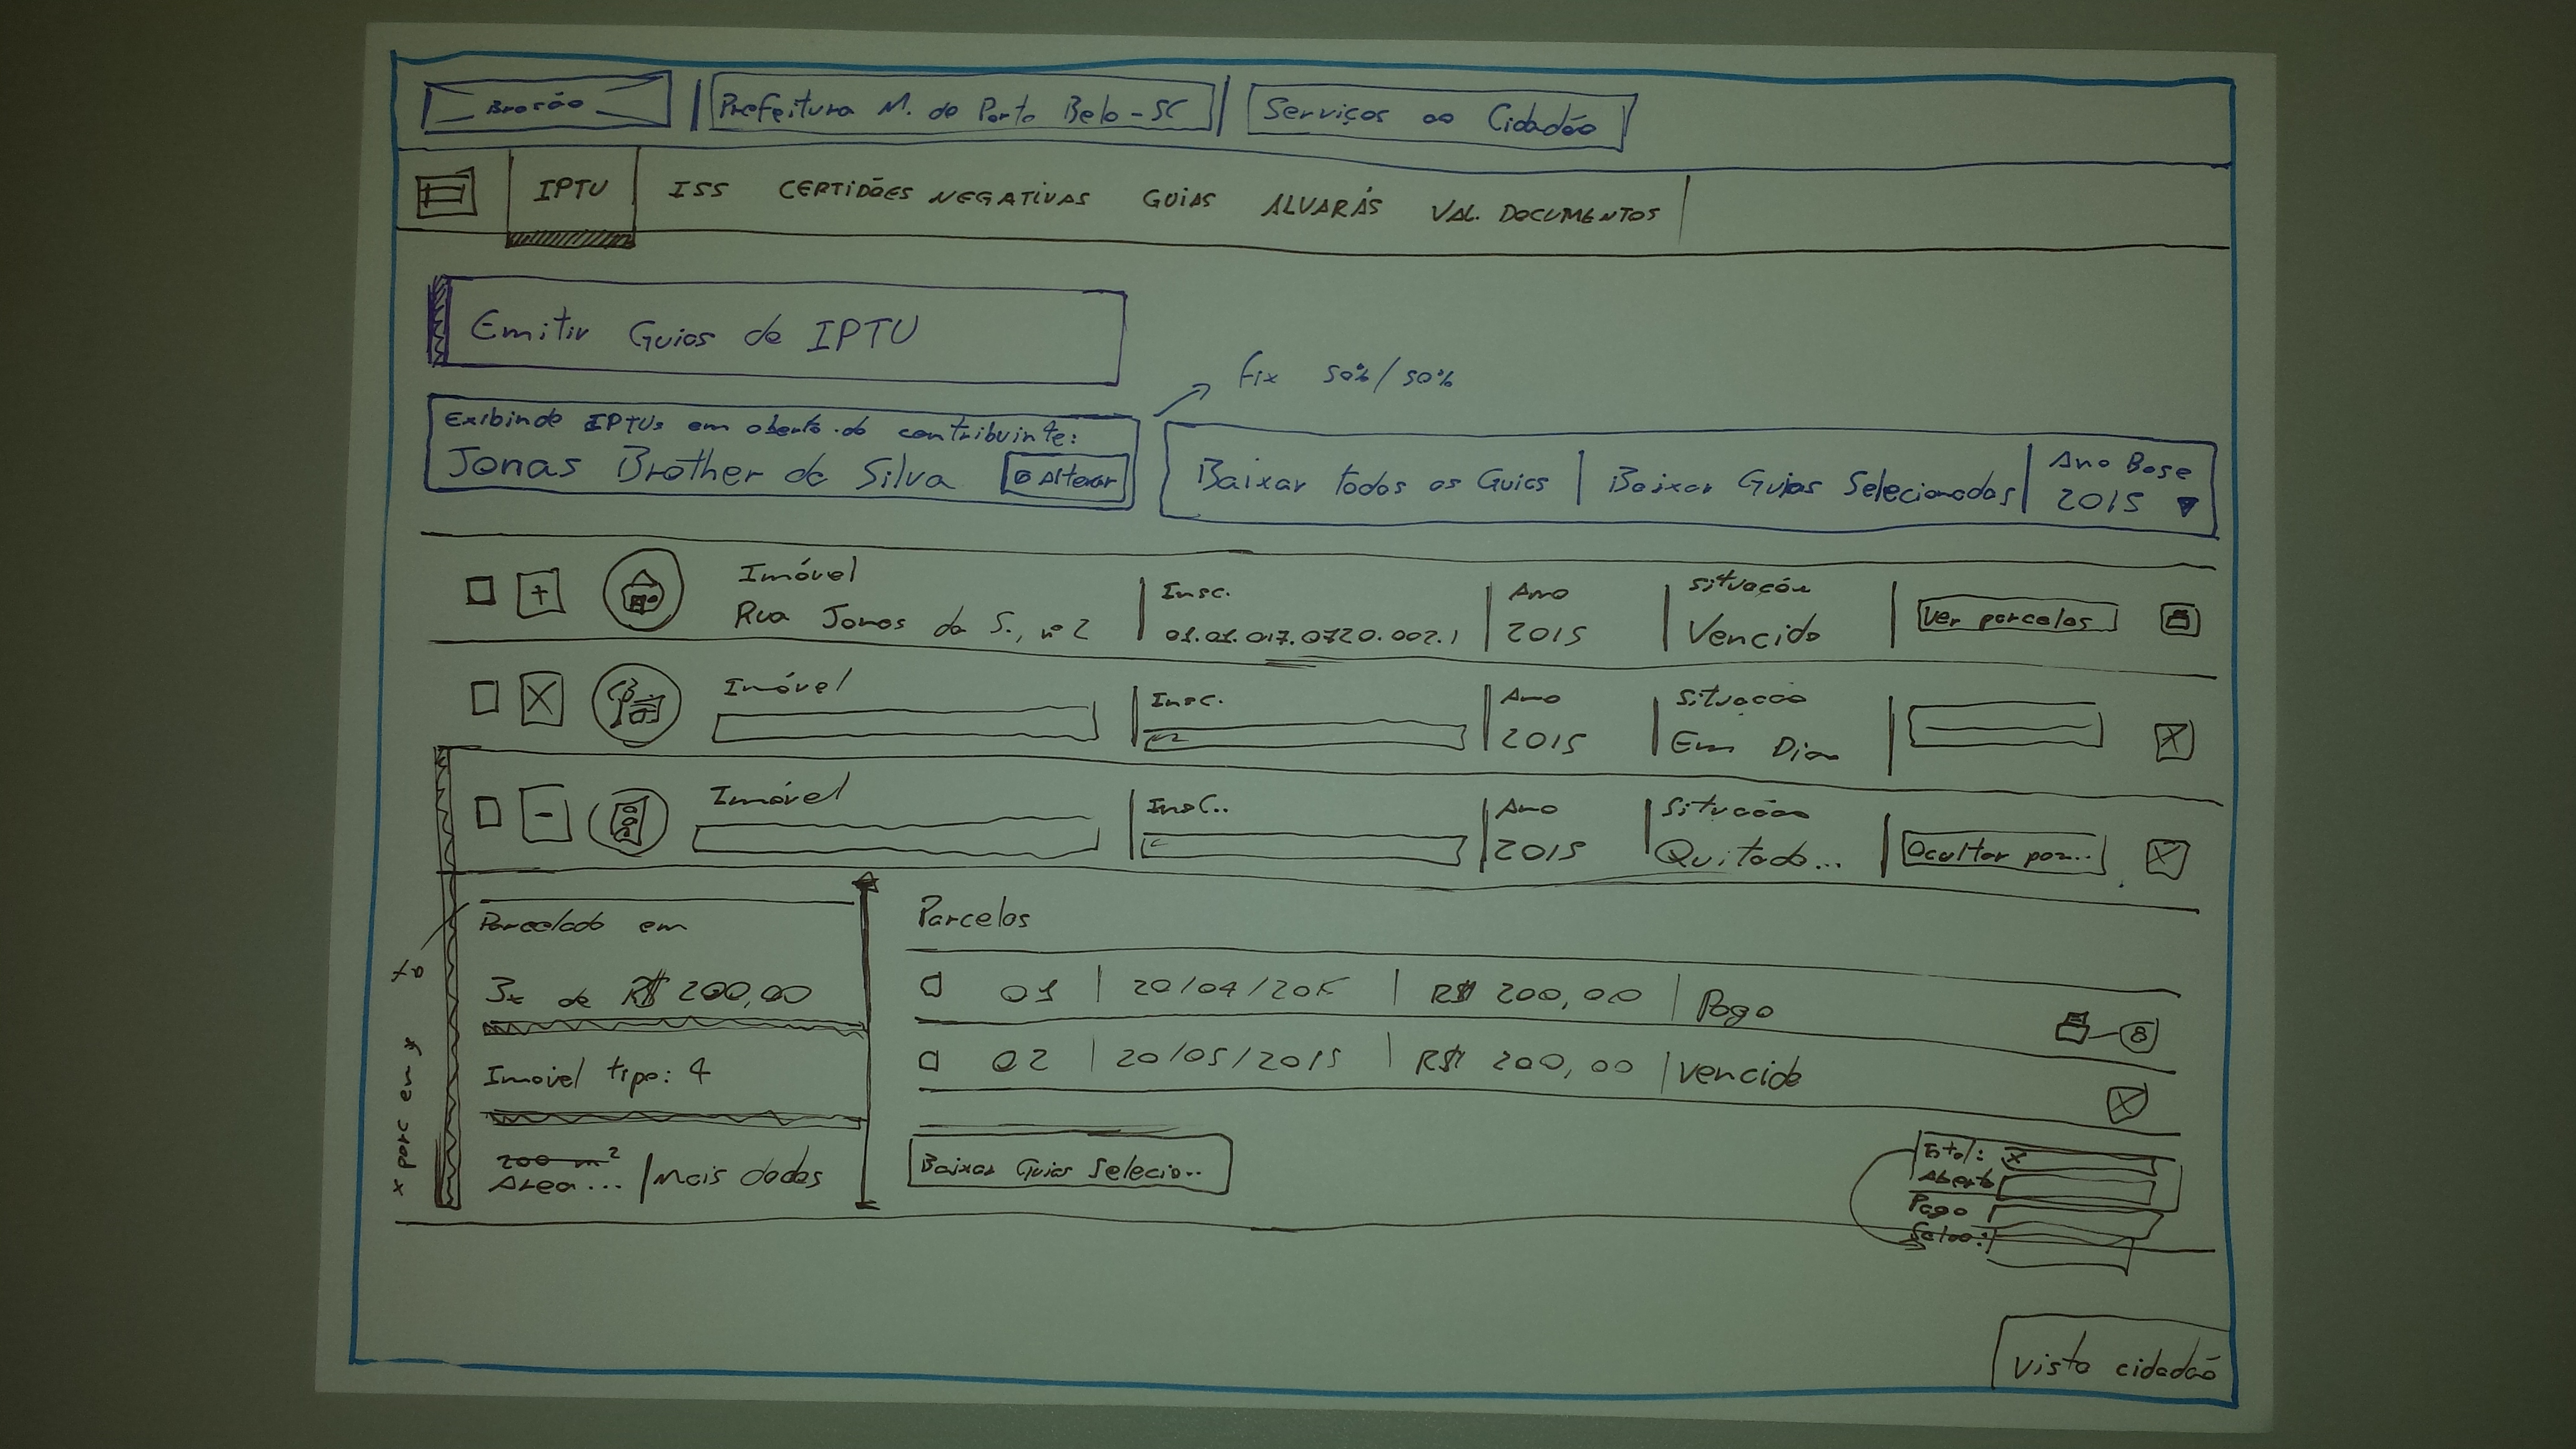 Brasão
Prefeitura M. de Porto Belo - SC
Serviços ao Cidadão
IPTU ISS CERTIDÕES NEGATIVAS GUIAS ALVARÁS VAL. DOCUMENTOS
Emitir Guias de IPTU
fix 50% / 50%
Exibindo IPTUs em aberto do contribuinte:
Jonas Brother da Silva
Alterar
Baixar todas as Guias | Baixar Guias Selecionadas
Ano Base
2015
Imóvel
Rua Jonas da S., nº 2
Insc.
01.01.017.0720.002.1
Ano
2015
Situação
Vencido
Ver parcelas
Imóvel
Insc.
Ano
2015
Situação
Em Dia
Imóvel
Insc..
Ano
2015
Situação
Quitado...
Ocultar par...
Parcelado em
3x de R$ 200,00
Imóvel tipo: 4
200 m²
Area... | Mais dados
x parc em y
Parcelas
01 | 20/04/201 | R$ 200,00 | Pago
8
02 | 20/05/2015 | R$ 200,00 | Vencido
Baixar Guias Selecio..
Total: x
Aberto
Pago
Visto cidadão